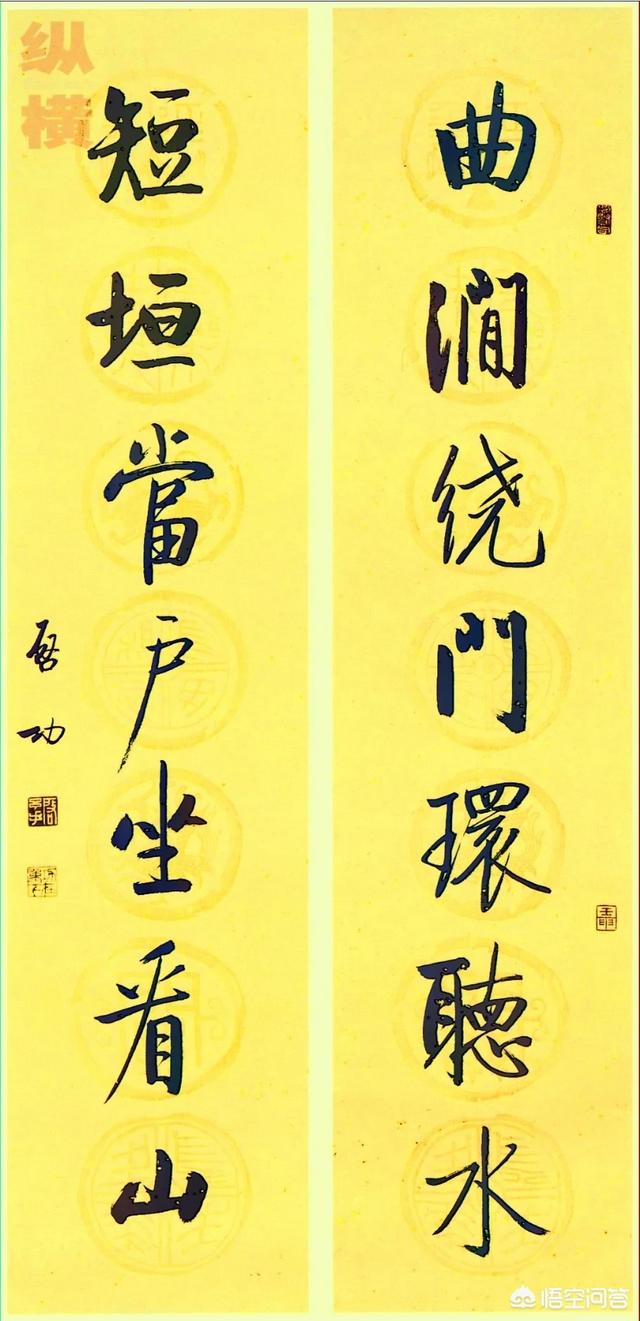 曲澗绕門環聽水
短垣當户坐看山
啓功
纵横
悟空问答